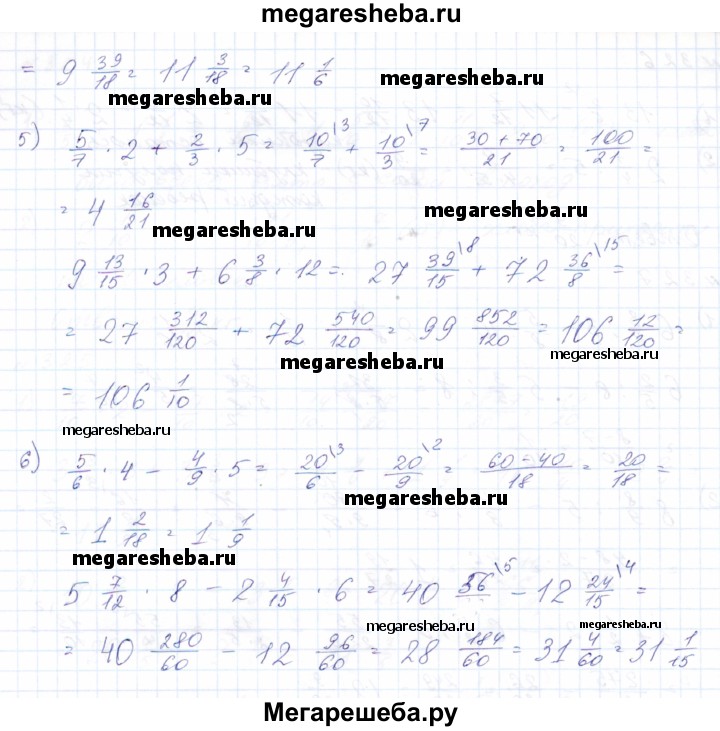 megaresheba.ru
= 9 39/18 = 11 3/18 = 11 1/6
megaresheba.ru
megaresheba.ru
5) 5/7 · 2 + 2/3 · 5 = 10/7 \3 + 10/3 \7 = 30 + 70/21 = 100/21 =
= 4 16/21
megaresheba.ru
megaresheba.ru
9 13/15 · 3 + 6 3/8 · 12 = 27 39/15 \8 + 72 36/8 \15 =
= 27 312/120 + 72 540/120 = 99 852/120 = 106 12/120 =
megaresheba.ru
megaresheba.ru
= 106 1/10
megaresheba.ru
6) 5/6 · 4 - 4/9 · 5 = 20/6 \3 - 20/9 \2 = 60 - 40/18 = 20/18 =
megaresheba.ru
= 1 2/18 = 1 1/9
megaresheba.ru
megaresheba.ru
5 7/12 · 8 - 2 4/15 · 6 = 40 56 \5 - 12 24/15 \4 =
megaresheba.ru
megaresheba.ru
megaresheba.ru
= 40 280/60 - 12 96/60 = 28 184/60 = 31 4/60 = 31 1/15
Мегарешеба.ру